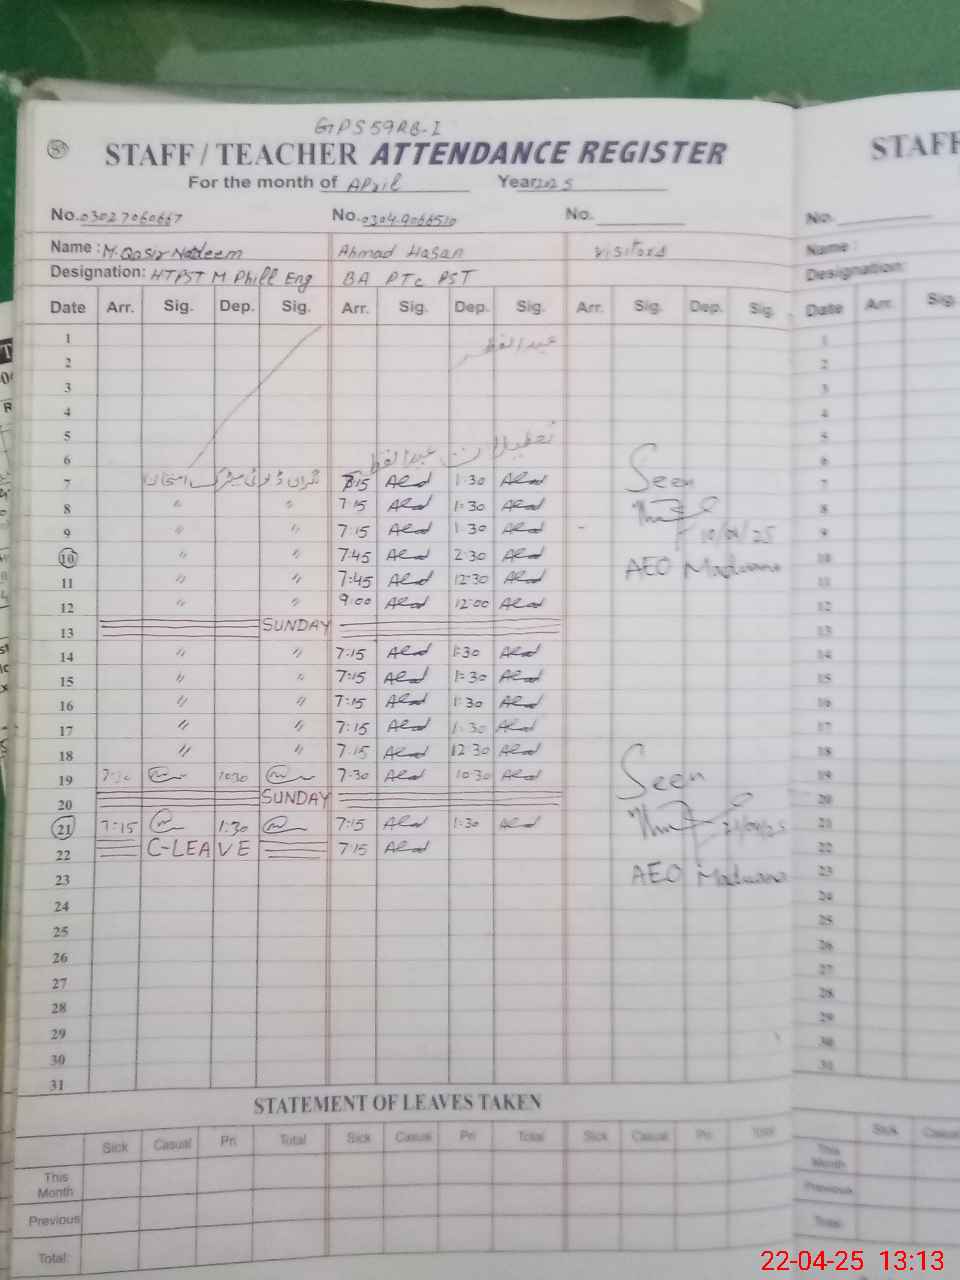 GPS 59RB-I
STAFF / TEACHER ATTENDANCE REGISTER
For the month of April Year 2025
No. 03027060667 No. 03049066510 No.
Name : M. Qasir Nadeem Ahmad Hasan visitors
Designation: HTPST M Phill Eng BA PTC PST
Date Arr. Sig. Dep. Sig. Arr. Sig. Dep. Sig. Arr. Sig. Dep. Sig.
1 عیدالفطر
2
3
4
5
6 تعطیلات عیدالفطر
7 نگران ڈیوٹی میٹرک امتحان 7:15 1:30 Seen
8 " " 7:15 1:30
9 " " 7:15 1:30 - 10/04/25
10 " " 7:45 2:30 AEO Maduana
11 " " 7:45 12:30
12 " " 9:00 12:00
13 SUNDAY
14 " " 7:15 1:30
15 " " 7:15 1:30
16 " " 7:15 1:30
17 " " 7:15 1:30
18 " " 7:15 12:30
19 7:30 10:30 7:30 10:30 Seen
20 SUNDAY
21 7:15 1:30 7:15 1:30 21/04/25
22 C-LEAVE 7:15
23 AEO Maduana
24
25
26
27
28
29
30
31
STATEMENT OF LEAVES TAKEN
Sick Casual Pri Total Sick Casual Pri Total Sick Casual Pri Total
This Month
Previous
Total:
STAFF
No.
Name :
Designation:
Date Arr. Sig.
1
2
3
4
5
6
7
8
9
10
11
12
13
14
15
16
17
18
19
20
21
22
23
24
25
26
27
28
29
30
31
Sick Casual
This Month
Previous
Total:
22-04-25 13:13